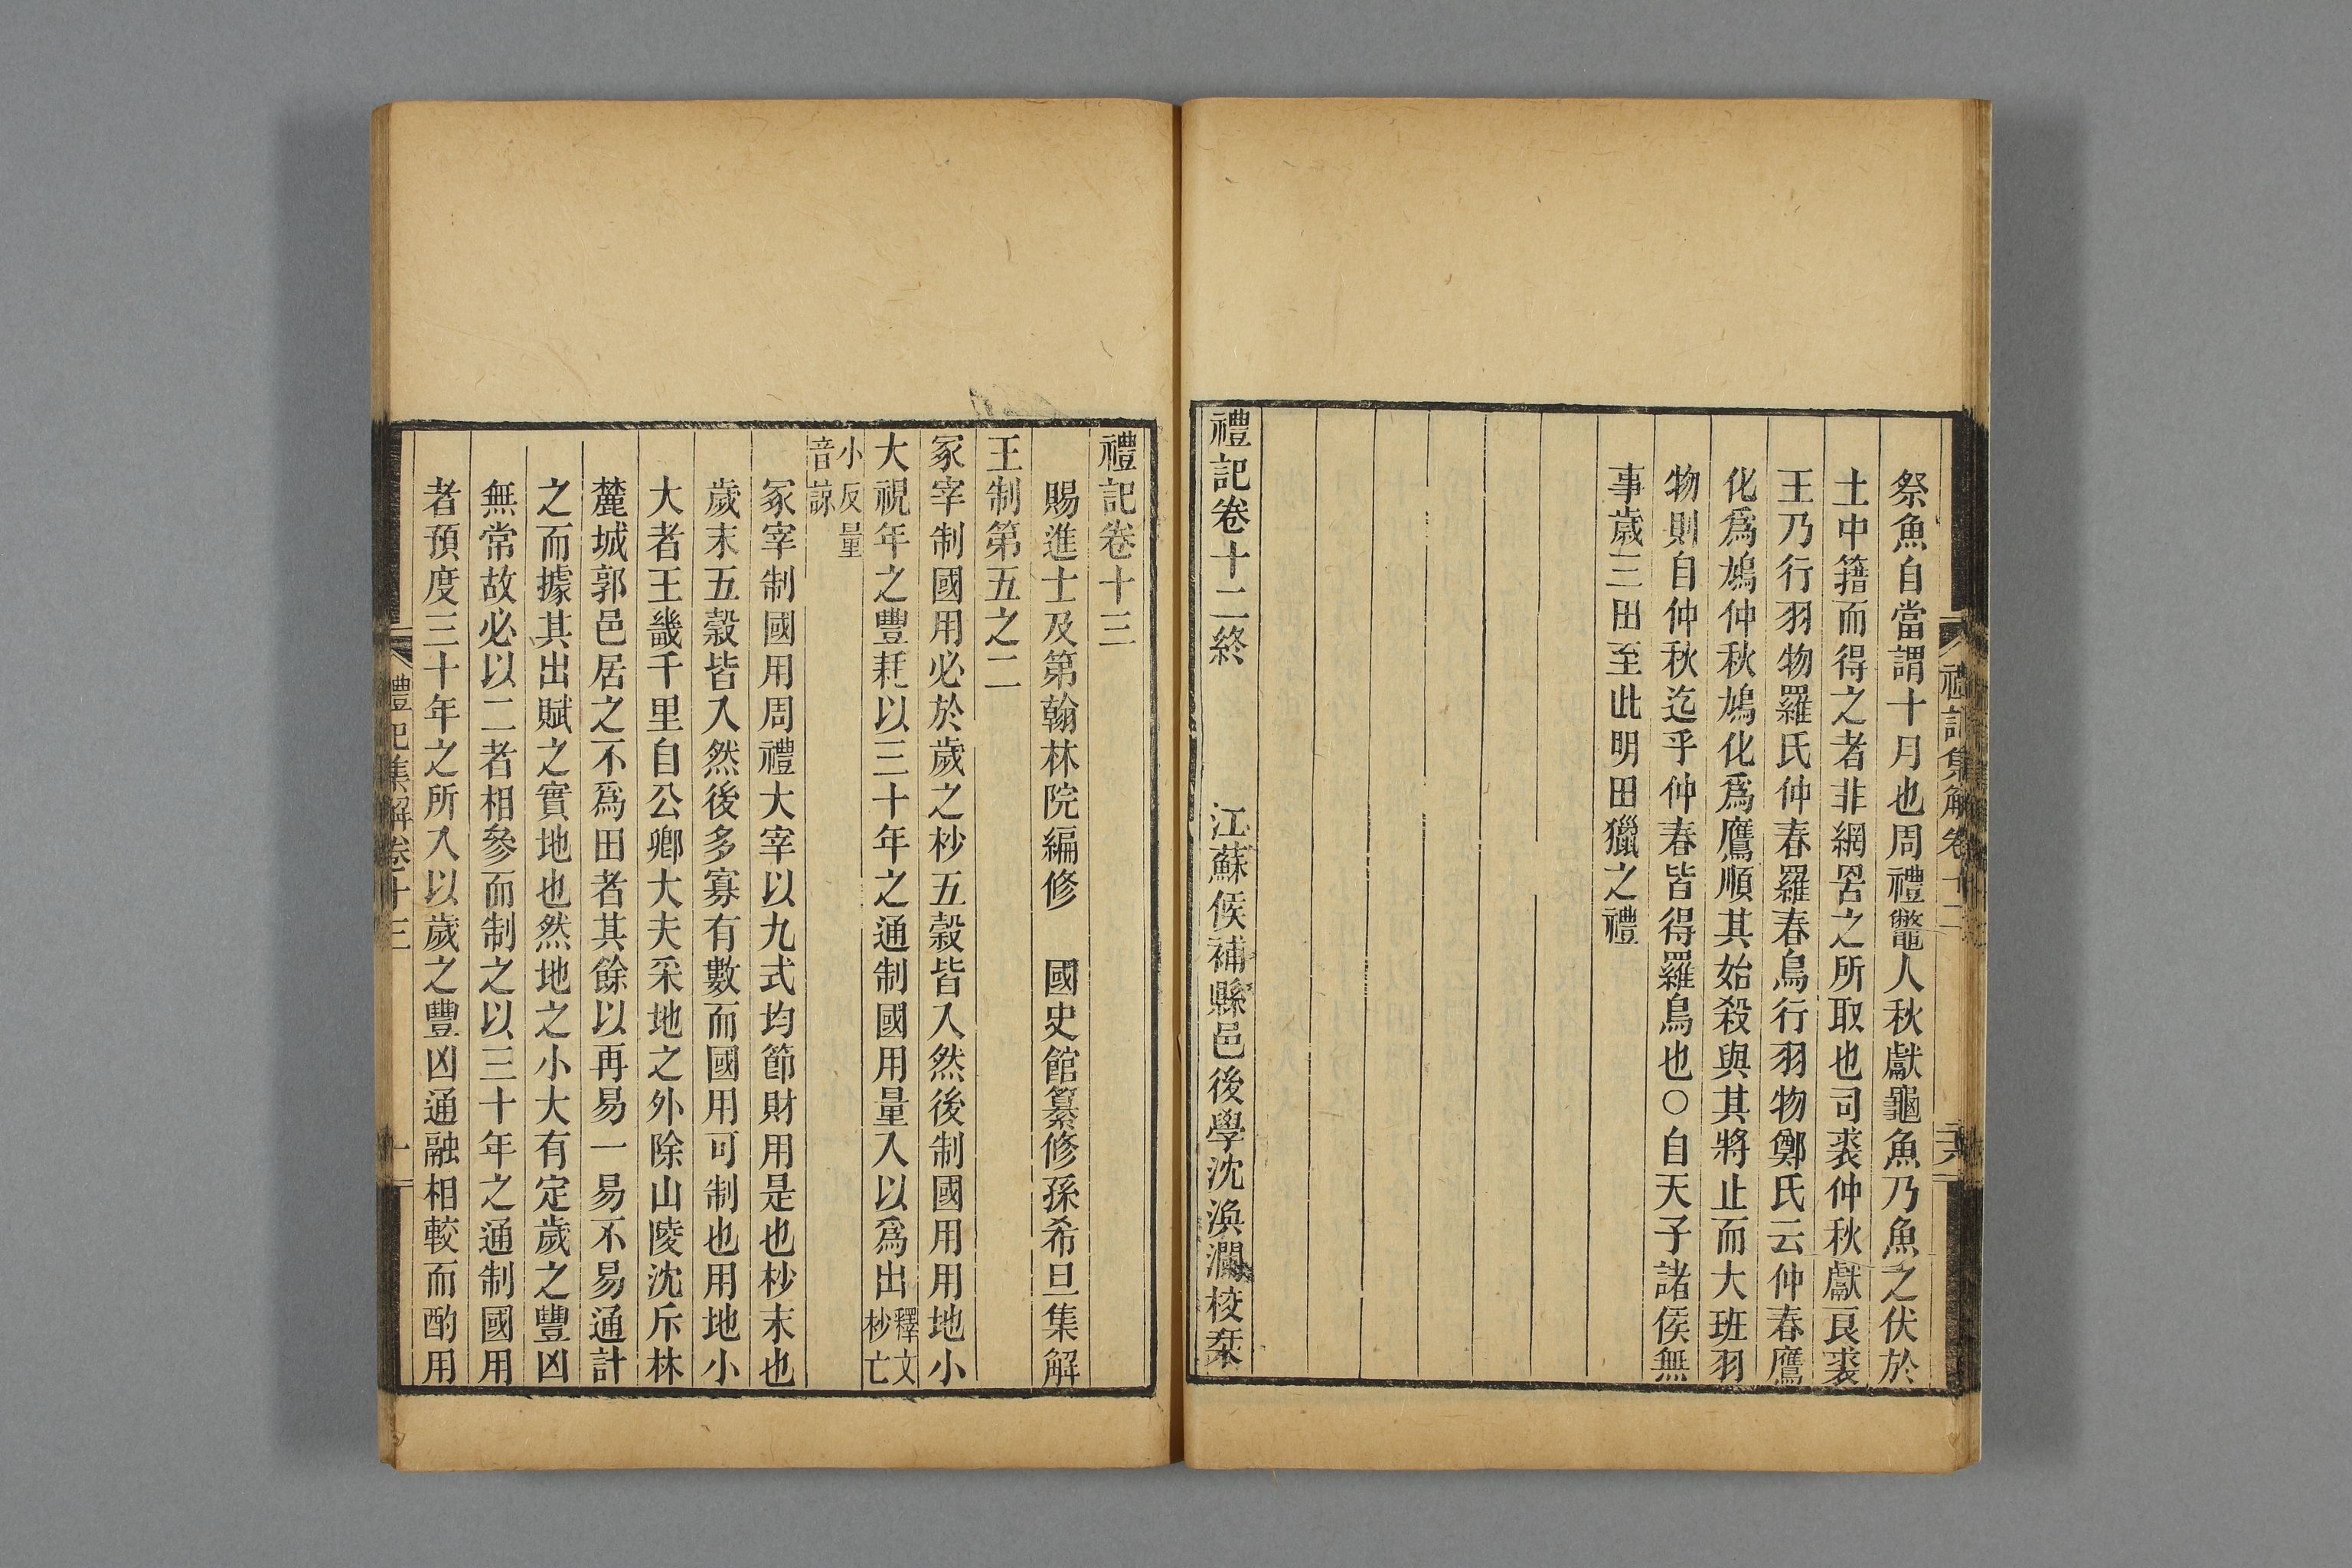 禮記集解卷十二
二十六
祭魚自當謂十月也周禮鼈人秋獻龜魚乃魚之伏於
土中籍而得之者非網罟之所取也司裘仲秋獻良裘
王乃行羽物羅氏仲春羅春鳥行羽物鄭氏云仲春鷹
化爲鳩仲秋鳩化爲鷹順其始殺與其將止而大班羽
物則自仲秋迄乎仲春皆得羅鳥也○自天子諸侯無
事歲三田至此明田獵之禮
禮記卷十二終 江蘇候補縣邑後學沈渙瀾校栞
禮記卷十三
賜進士及第翰林院編修 國史館纂修孫希旦集解
王制第五之二
冢宰制國用必於歲之杪五穀皆入然後制國用用地小
大視年之豐耗以三十年之通制國用量入以爲出釋文杪亡
小反量音諒
冢宰制國用周禮大宰以九式均節財用是也杪末也
歲末五穀皆入然後多寡有數而國用可制也用地小
大者王畿千里自公卿大夫采地之外除山陵沈斥林
麓城郭邑居之不爲田者其餘以再易一易不易通計
之而據其出賦之實地也然地之小大有定歲之豐凶
無常故必以二者相參而制之以三十年之通制國用
者預度三十年之所入以歲之豐凶通融相較而酌用
禮記集解卷十三
一